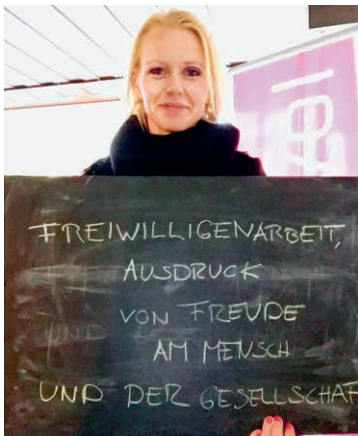 FREIWILLIGENARBEIT,
AUSDRUCK
VON FREUDE
AM MENSCH
UND DER GESELLSCHAFT